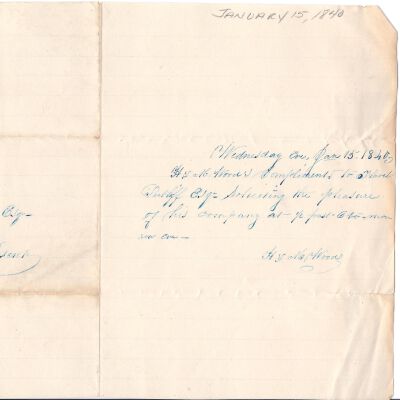 JANUARY 15, 1840
Wednesday Eve, Jan 15. 1840,
Wood's Compliments to
Esq- Soliciting the pleasure
of his company at ½ past 6 to-mor
row eve-
Wood
Esq-